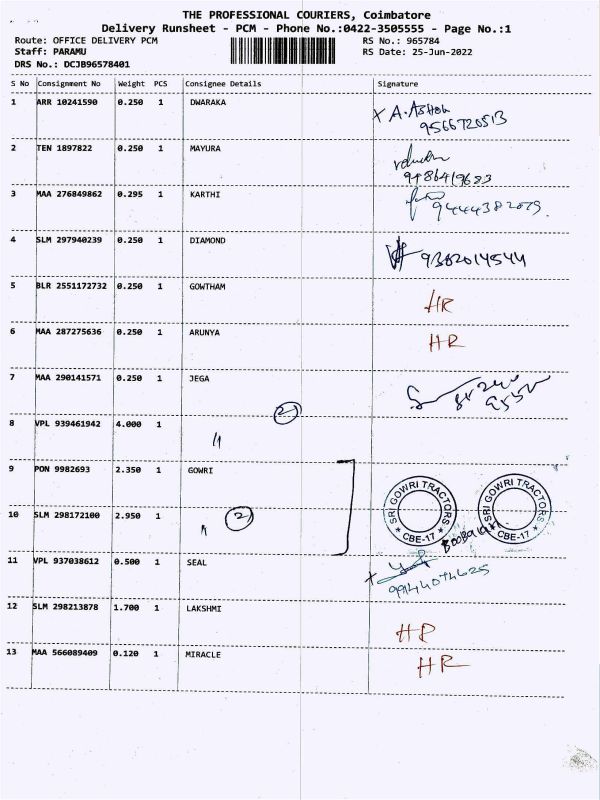 THE PROFESSIONAL COURIERS, Coimbatore
Delivery Runsheet - PCM - Phone No.:0422-3505555 - Page No.:1
Route: OFFICE DELIVERY PCM RS No.: 965784
Staff: PARAMU RS Date: 25-Jun-2022
DRS No.: DCJB96578401
S No Consignment No Weight PCS Consignee Details Signature
1 ARR 10241590 0.250 1 DWARAKA
X A.Ashok
9566720513
2 TEN 1897822 0.250 1 MAYURA
9486419683
3 MAA 276849862 0.295 1 KARTHI
9444382079.
4 SLM 297940239 0.250 1 DIAMOND
9382014544
5 BLR 2551172732 0.250 1 GOWTHAM
HR
6 MAA 287275636 0.250 1 ARUNYA
HR
7 MAA 290141571 0.250 1 JEGA
2
8 VPL 939461942 4.000 1
11
9 PON 9982693 2.350 1 GOWRI
SRI GOWRI TRACTORS
* CBE-17 *
SRI GOWRI TRACTORS
* CBE-17 *
10 SLM 298172100 2.950 1
2
11 VPL 937038612 0.500 1 SEAL
X
9944074625
12 SLM 298213878 1.700 1 LAKSHMI
HR
13 MAA 566089409 0.120 1 MIRACLE
HR